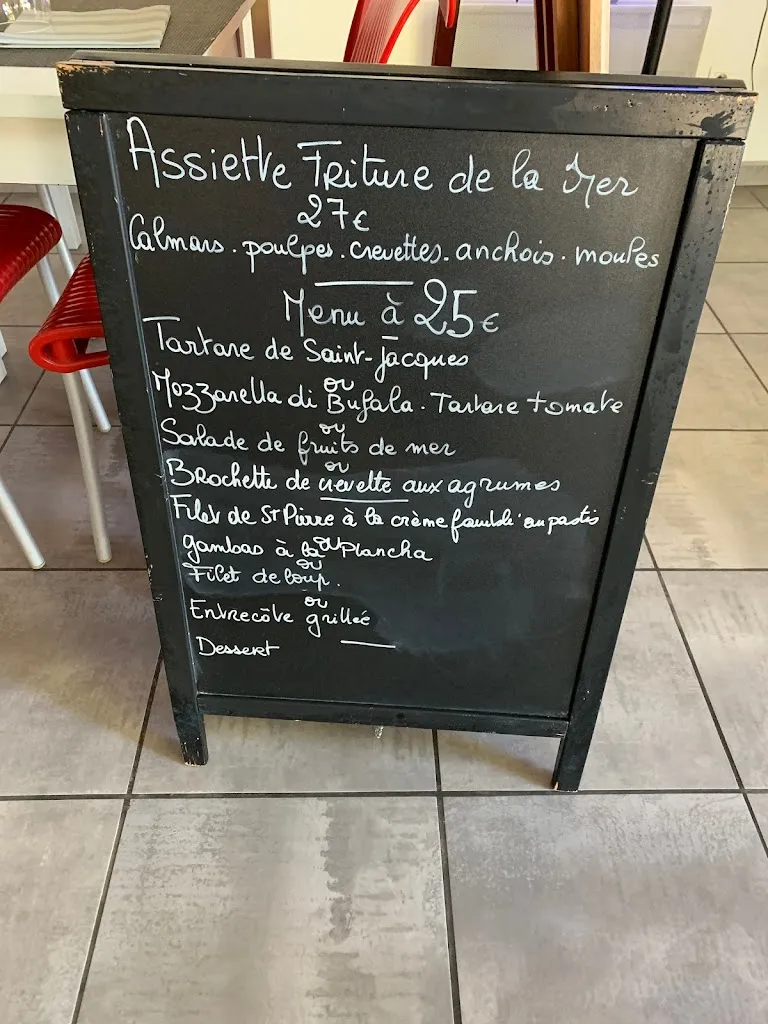 Assiette Friture de la Mer
27€
Calmars . poulpes . crevettes . anchois . moules
Menu à 25€
Tartare de Saint-Jacques
ou
Mozzarella di Bufala . Tartare tomate
ou
Salade de fruits de mer
ou
Brochette de crevette aux agrumes
Filet de St Pierre à la crème flambé au pastis
ou
gambas à la Plancha
ou
Filet de loup.
ou
Entrecôte grillée
Dessert